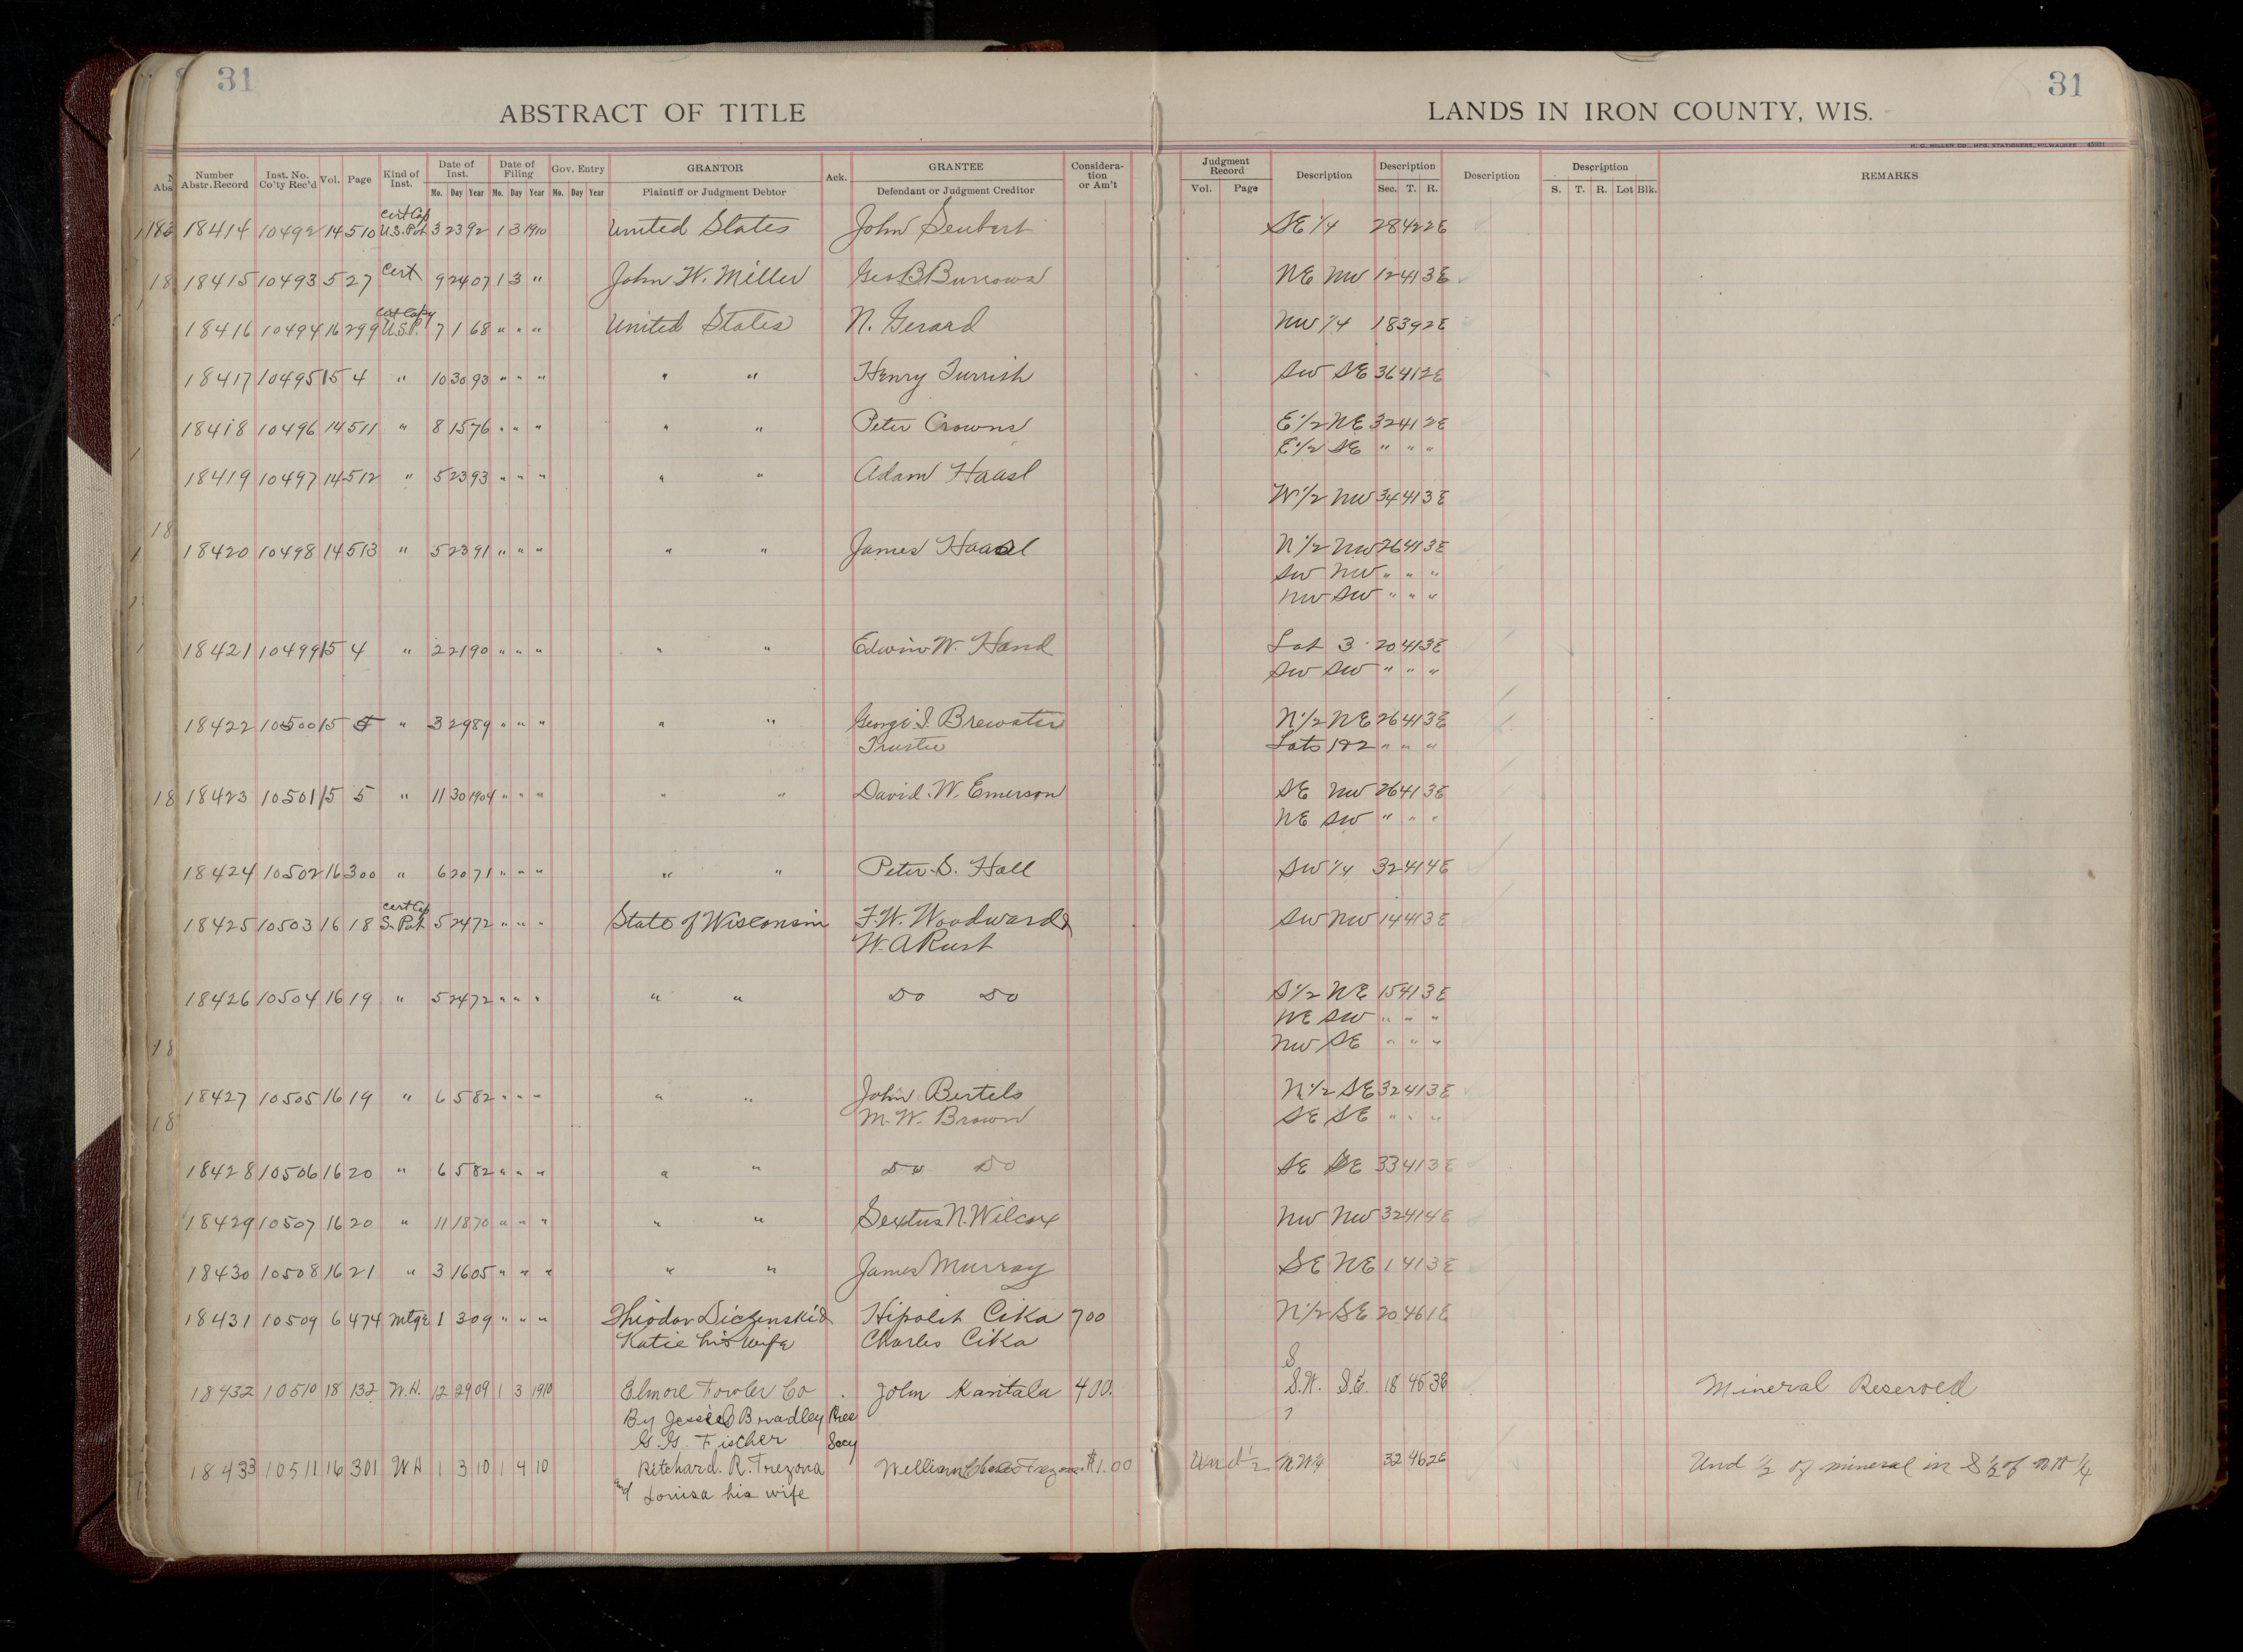 31
31
ABSTRACT OF TITLE
LANDS IN IRON COUNTY, WIS.
H. C. MILLER CO., MFG. STATIONERS, MILWAUKEE
Number Abstr. Record Inst. No. Co'ty Rec'd Vol. Page Kind of Inst. Date of Inst. Mo. Day Year Date of Filing Mo. Day Year Gov. Entry Mo. Day Year GRANTOR Plaintiff or Judgment Debtor Ack. GRANTEE Defendant or Judgment Creditor Considera-tion or Am't Judgment Record Vol. Page Description Description Sec. T. R. Description Description S. T. R. Lot Blk. REMARKS
Cert Cop
18414 10492 14 510 U.S. Pat 3 23 92 1 3 1910 United States John Seubert SE 1/4 28 42 2E
18415 10493 5 27 Cert 9 24 07 1 3 " John W. Miller Geo B Burrows NE NW 12 41 3E
Cert Copy
18416 10494 16 299 U.S.P. 7 1 68 " " " United States N. Gerard NW 1/4 18 39 2E
18417 10495 15 4 " 10 30 93 " " " " " Henry Turrish SW SE 36 41 2E
18418 10496 14 511 " 8 15 76 " " " " " Peter Crowns E 1/2 NE 32 41 2E
E 1/2 SE " " "
18419 10497 14 512 " 5 23 93 " " " " " Adam Haasl
W 1/2 NW 34 41 3E
18420 10498 14 513 " 5 23 91 " " " " " James Haasl N 1/2 NW 26 41 3E
SW NW " " "
NW SW " " "
18421 10499 15 4 " 2 21 90 " " " " " Edwin W. Hand Lot 3 20 41 3E
SW SW " " "
18422 10500 15 5 " 3 29 89 " " " " " George S. Brewster N 1/2 NE 26 41 3E
Trustee Lots 1&2 " " "
18423 10501 15 5 " 11 30 1904 " " " " " David. W. Emerson SE NW 26 41 3E
NE SW " " "
18424 10502 16 300 " 6 20 71 " " " " " Peter. S. Hall SW 1/4 32 41 4E
Cert Cop
18425 10503 16 18 S. Pat 5 24 72 " " " State of Wisconsin F. W. Woodward & SW NW 14 41 3E
W. A Rust
18426 10504 16 19 " 5 24 72 " " " " " Do Do S 1/2 NE 15 41 3E
NE SW " " "
NW SE " " "
18427 10505 16 19 " 6 5 82 " " " " " John Bertels N 1/2 SE 32 41 3E
M. W. Brown SE SE " " "
18428 10506 16 20 " 6 5 82 " " " " " Do Do SE SE 33 41 3E
18429 10507 16 20 " 11 18 70 " " " " " Sextus N. Wilcox NW NW 32 41 4E
18430 10508 16 21 " 3 16 05 " " " " " James Murray SE NE 1 41 3E
18431 10509 6 474 Mtge 1 3 09 " " " Hipolit Cika 700 N 1/2 SE 20 46 1E
Katie his wife Charles Cika
S
18432 10510 18 132 W.D. 12 29 09 1 3 1910 Elmore Fowler Co John Kantala 400. S.W. S.E. 18 45 3E Mineral Reserved
By Jessie Bradley Pres
G. G. Fischer Secy
18433 10511 16 301 WD 1 3 10 1 4 10 Ritchard. R. Trezona William Trezona $1.00 Und 1/2 NW 1/4 32 46 2E Und 1/2 of mineral in S 1/2 of NW 1/4
and Louisa his wife